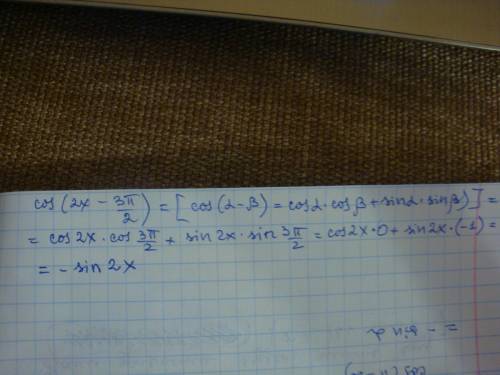 cos(2x − 3π/2) = [cos(α−β) = cosα·cosβ + sinα·sinβ)] =
= cos2x·cos 3π/2 + sin2x·sin 3π/2 = cos2x·0 + sin2x·(−1) =
= − sin2x
= − sin α